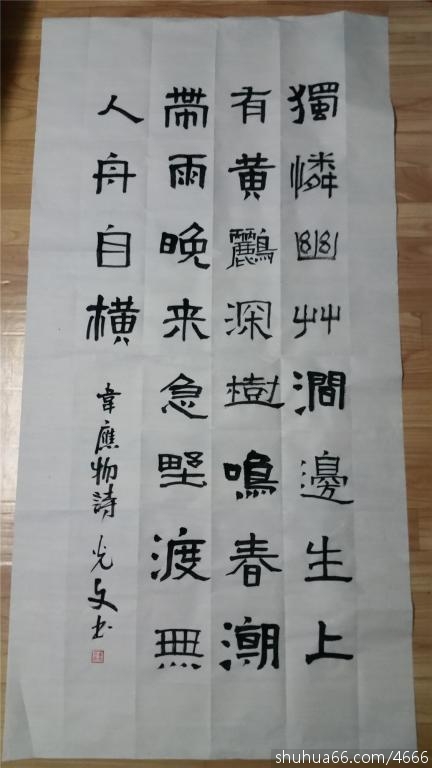 獨憐幽艸澗邊生上
有黄鸝深樹鳴春潮
帶雨晚来急野渡無
人舟自横
韋應物詩 光文书
shuhua66.com/4666